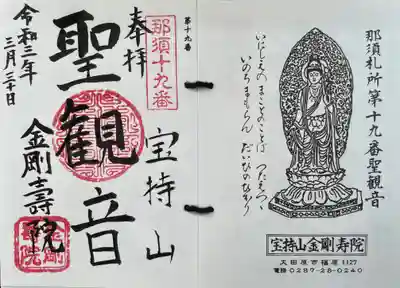 那須札所第十九番聖観音
いにしえの まことのことば つたえつつ
いのちまもらん だいひのひかり
宝持山金剛寿院
大田原市福原1127
電話0287-28-0240
第十九番
那須十九番
宝持山
奉拝
聖観音
金剛壽院
令和三年
三月三十日